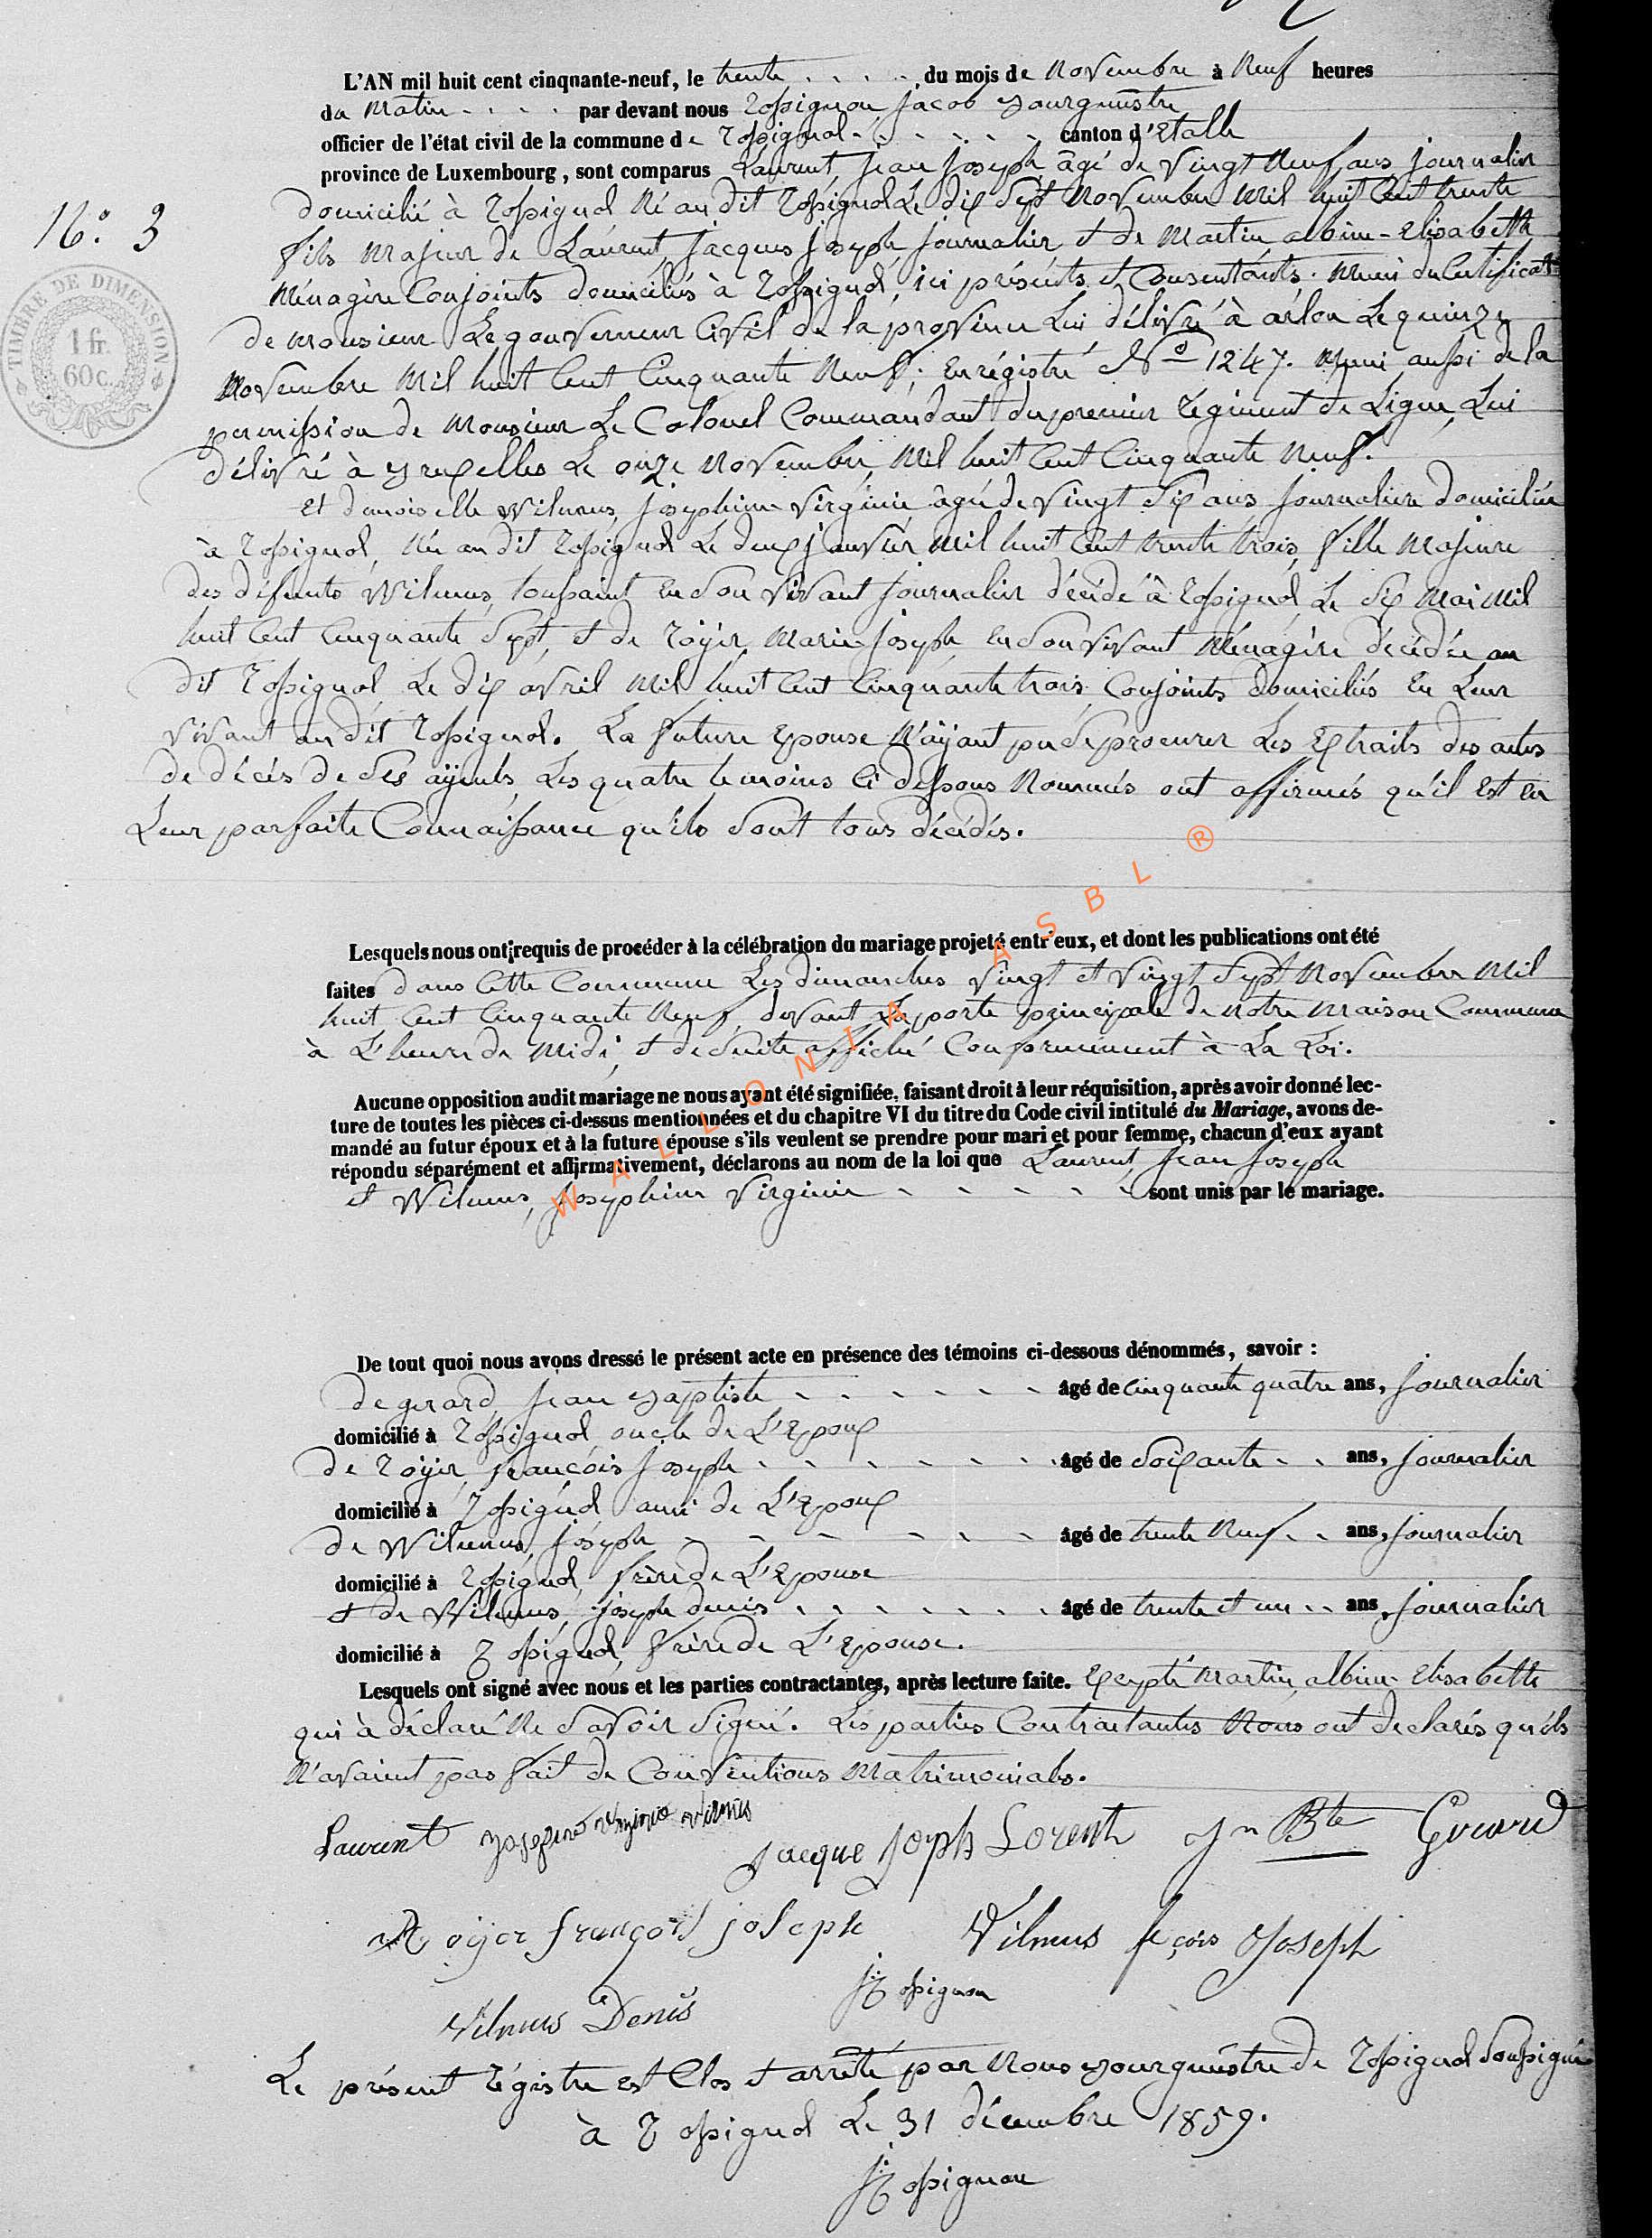 L'AN mil huit cent cinquante-neuf, le trente . . . . du mois de Novembre à Neuf heures
du Matin - - - - par devant nous Rossignon, Jacob Bourgmestre
officier de l'état civil de la commune de Rossignol - - - - - canton d'Etalle
province de Luxembourg, sont comparus Laurent, Jean Joseph, âgé de vingt Neuf ans journalier
domicilié à Rossignol Né au dit Rossignol Le dix Sept Novembre Mil huit Cent trente
fils Majeur de Laurent, Jacques Joseph, journalier et de Martin albine-Elisabeth
N° 3
Ménagère Conjoints domiciliés à Rossignol, ici présents et Consentants. Muni du Certificat
TIMBRE DE DIMENSION
1 fr.
60 c.
de Monsieur Le gouverneur Civil de la province Lui délivré à arlon Le quinze
Novembre Mil huit Cent Cinquante Neuf; Enrégistré N° 1247. Muni aussi de la
permission de Monsieur Le Colonel Commandant du premier régiment de Ligne, Lui
délivré à Bruxelles Le onze Novembre Mil huit Cent Cinquante Neuf.
Et demoiselle Wilmus, Joséphine Virginie âgée de Vingt Six ans journalière domiciliée
à Rossignol, Née au dit Rossignol Le deux janvier Mil huit Cent trente trois, fille Majeure
des défunts Wilmus, toussaint En Son Vivant journalier décédé à Rossignol Le Six Mai Mil
huit Cent Cinquante Sept, et de Royer, Marie-Joseph, En Son Vivant Ménagère décédée au
dit Rossignol Le dix avril Mil huit Cent Cinquante trois Conjoints domiciliés En Leur
Vivant au dit Rossignol. La future Epouse N'ayant pu Se procurer Les Extraits des actes
de décès de Ses ayeuls, Les quatre témoins Ci dessous Nommés ont affirmés qu'il Est En
Leur parfaite Connaissance qu'ils Sont tous décédés.
Lesquels nous ont requis de procéder à la célébration du mariage projeté entr'eux, et dont les publications ont été
faites dans Cette Commune Les dimanches Vingt et Vingt Sept Novembre Mil
huit Cent Cinquante Neuf, devant La porte principale de Notre Maison Commune
à L'heure de Midi, et de Suite affiché Conformément à La Loi.
Aucune opposition audit mariage ne nous ayant été signifiée, faisant droit à leur réquisition, après avoir donné lec-
ture de toutes les pièces ci-dessus mentionnées et du chapitre VI du titre du Code civil intitulé du Mariage, avons de-
mandé au futur époux et à la future épouse s'ils veulent se prendre pour mari et pour femme, chacun d'eux ayant
répondu séparément et affirmativement, déclarons au nom de la loi que Laurent, Jean Joseph
et Wilmus, Joséphine Virginie - - - - - sont unis par le mariage.
WALLONIA ASBL ®
De tout quoi nous avons dressé le présent acte en présence des témoins ci-dessous dénommés, savoir :
de gerard, Jean Baptiste - - - - - - âgé de Cinquante quatre ans, Journalier
domicilié à Rossignol oncle de L'Epoux
de Royer, François Joseph - - - - - - âgé de Soixante - - ans, Journalier
domicilié à Rossignol ami de L'Epoux
de Wilmus, Joseph - - - - - - âgé de trente Neuf - - ans, Journalier
domicilié à Rossignol, frère de L'Epouse
et de Wilmus, Joseph denis - - - - - - âgé de trente et un - - ans, Journalier
domicilié à Rossignol, frère de L'Epouse.
Lesquels ont signé avec nous et les parties contractantes, après lecture faite. Excepté Martin, albine-Elisabeth
qui à déclaré Ne Savoir Signé. Les parties Contractantes Nous ont déclarés qu'ils
N'avaient pas fait de Conventions Matrimoniales.
Laurent Josephine Virginie Vilmus
Jacque Joph Lorent Jn Bte Gerard
Royer françois joseph Vilmus fçois Joseph
Vilmus Denis JRossignon
Le présent régistre est Clos et arrêté par Nous Bourgmestre de Rossignol Soussigné
à Rossignol Le 31 décembre 1859.
JRossignon